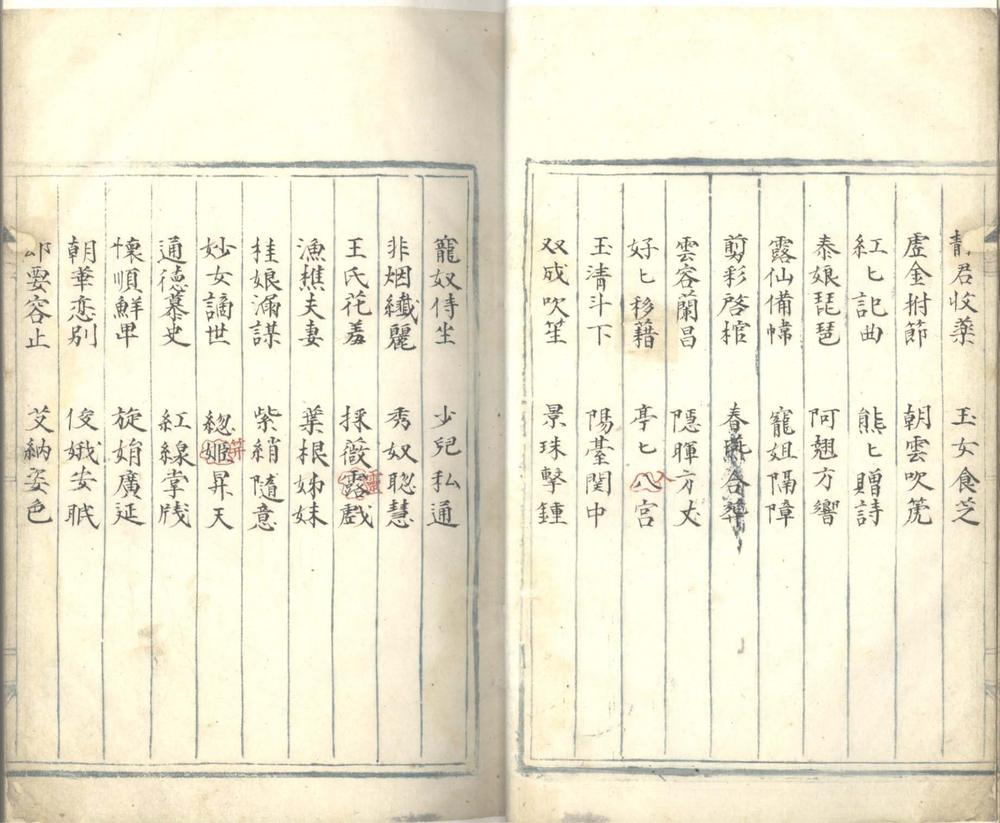 靜君收藥 玉女食芝
虛金拊節 朝雲吹箎
紅匕記曲 熊匕贈詩
泰娘琵琶 阿翹方響
露仙備幃 寵姐隔障
剪彩啓棺 春燕合葬
雲容蘭昌 隱暉方丈
好匕移籍 亭匕入宮
玉清斗下 陽臺関中
双成吹笙 景珠擊鍾
寵奴侍坐 少兒私通
非烟纖麗 秀奴聡慧
王氏花羞 採薇露戲
漁樵夫妻 葉根姊妹
桂娘滿謀 紫綃隨意
妙女謫世 緫姬昇天
通德慕史 紅線掌牋
懷順鮮卑 旋娟廣延
朝華恋別 俊娥安眠
要容止 艾納姿色